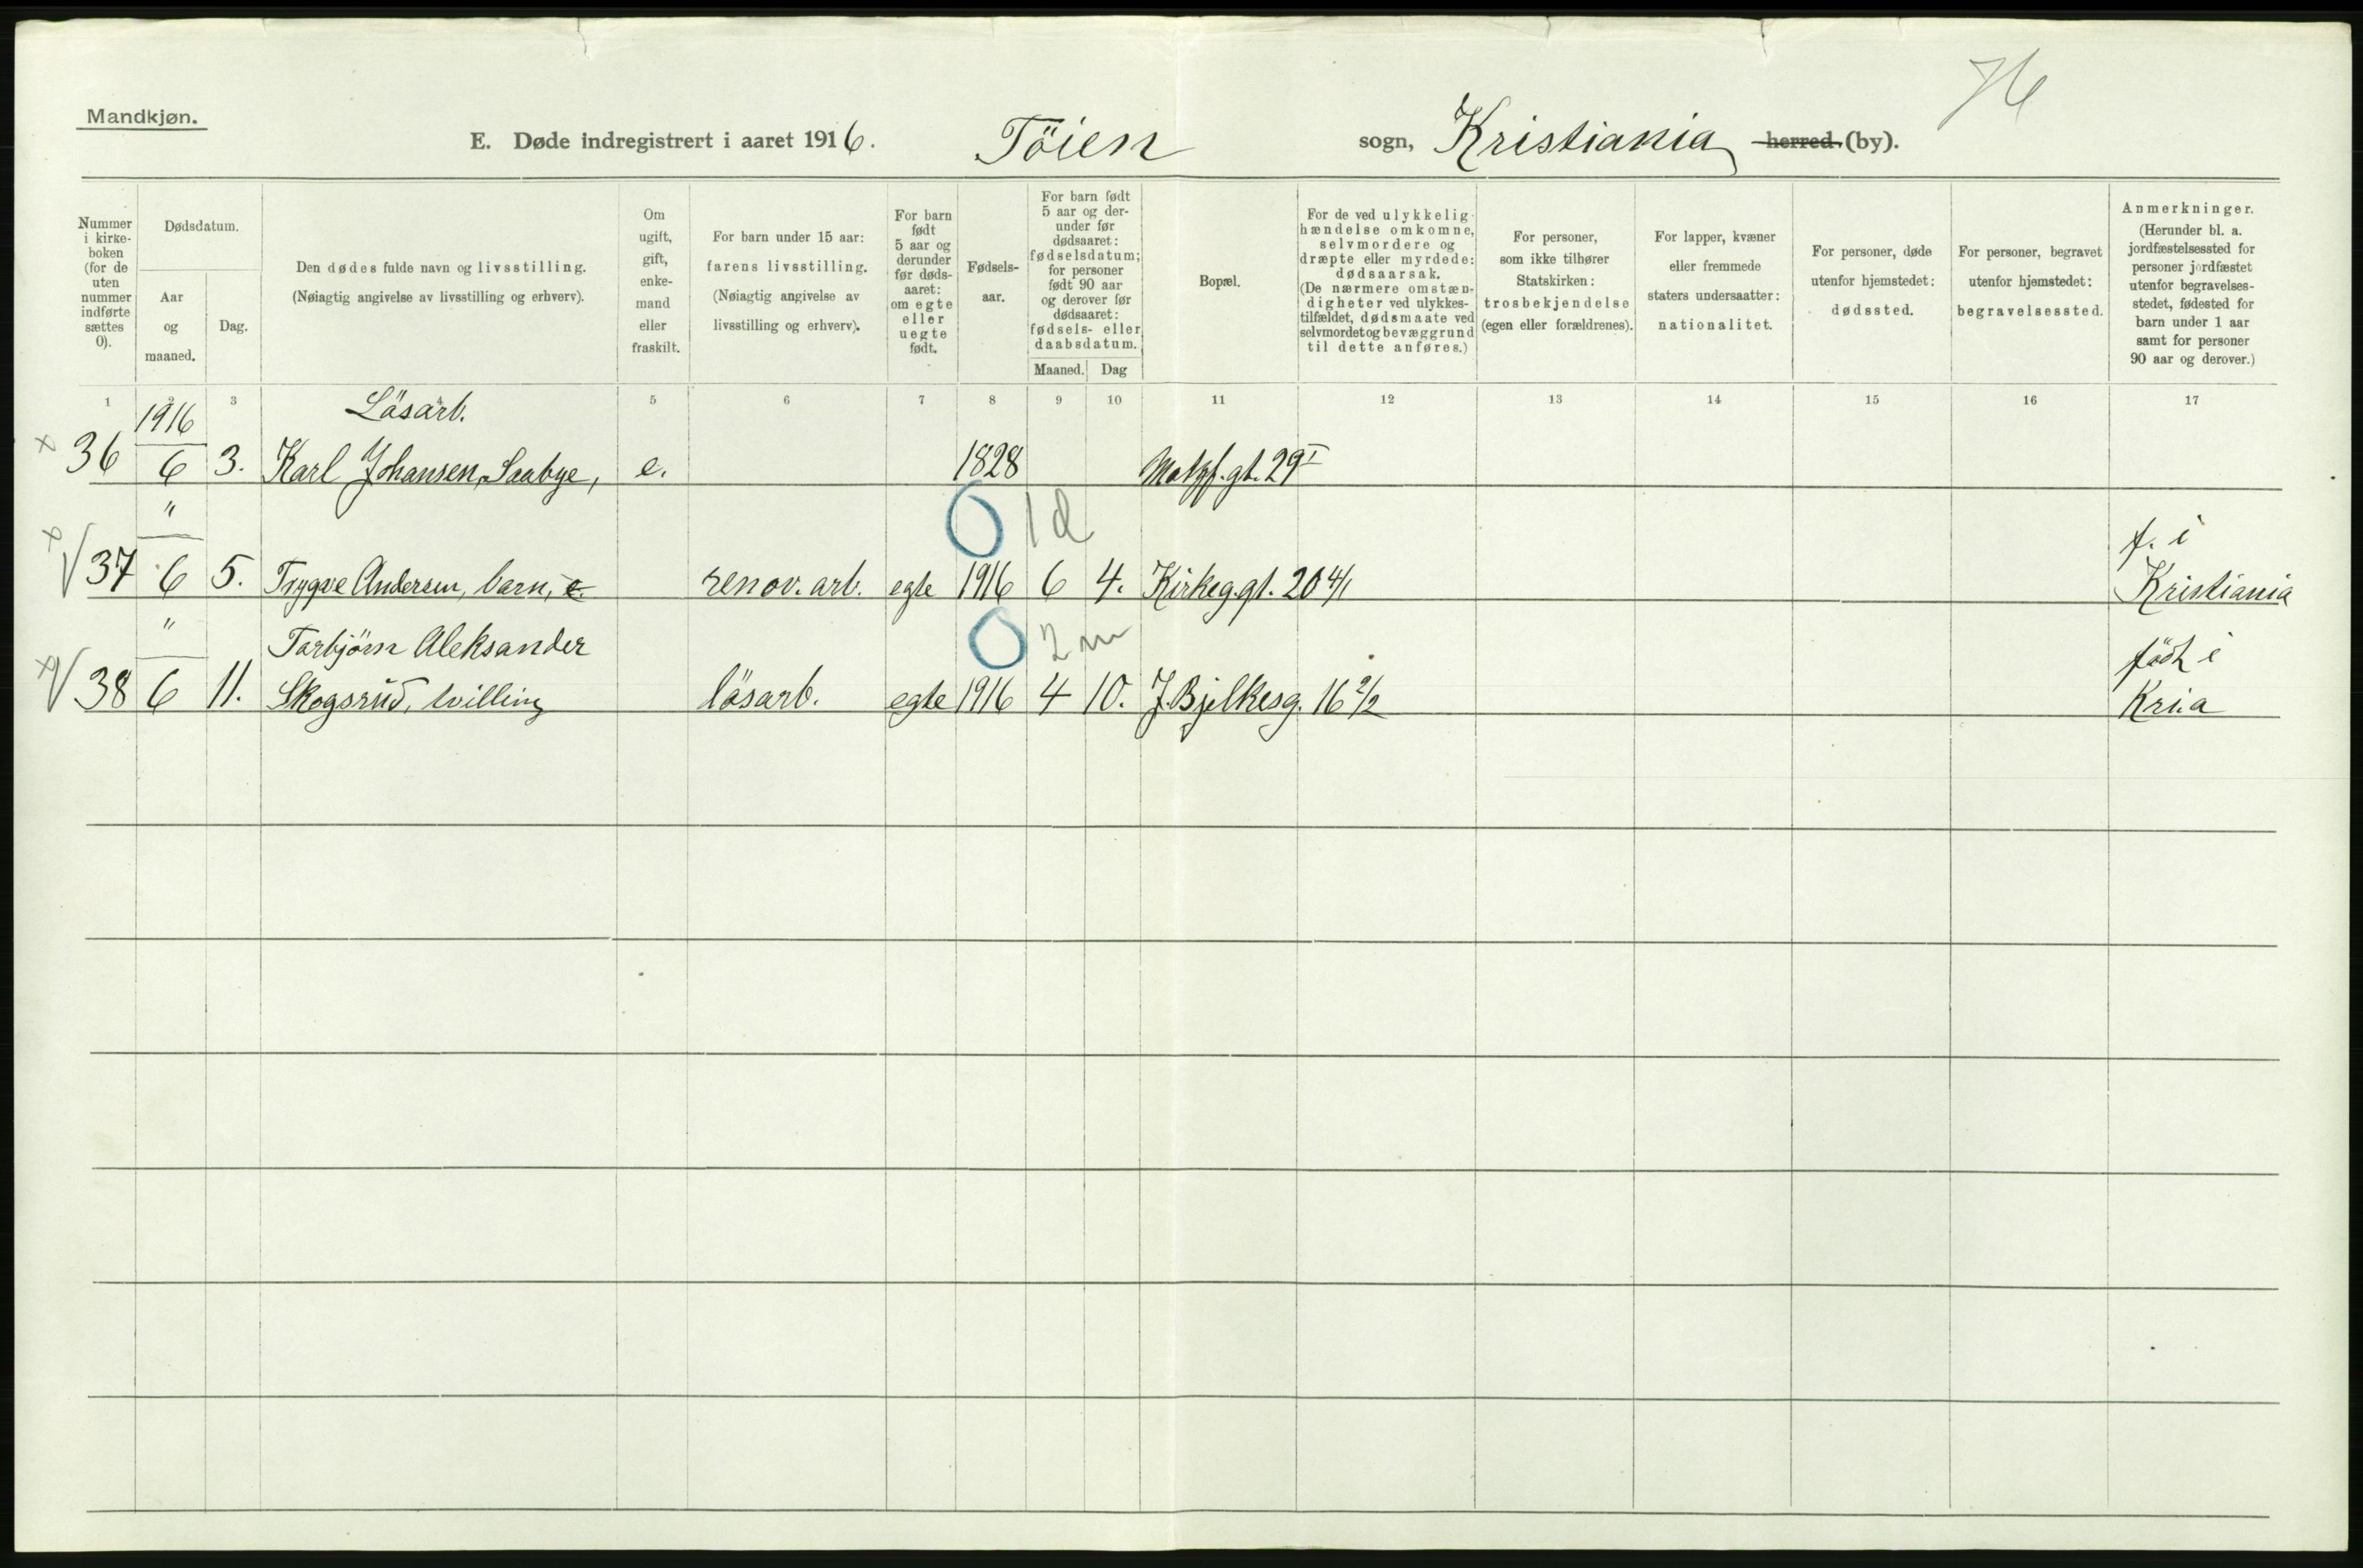 76
Mandkjøn.
E. Døde indregistrert i aaret 1916. Töien sogn, Kristiania herred (by).
Nummer i kirke- boken (for de uten nummer indførte sættes 0).
Dødsdatum.
Aar og maaned.
Dag.
Den dødes fulde navn og livsstilling.
(Nøiagtig angivelse av livsstilling og erhverv).
Om ugift, gift, enke- mand eller fraskilt.
For barn under 15 aar:
farens livsstilling.
(Nøiagtig angivelse av
livsstilling og erhverv).
For barn født 5 aar og derunder før døds- aaret: om egte eller uegte født.
Fødsels- aar.
For barn født 5 aar og der- under før dødsaaret: fødselsdatum; for personer født 90 aar og derover før dødsaaret: fødsels- eller daabsdatum.
Maaned. Dag
Bopæl.
For de ved ulykkelig- hændelse omkomne, selvmordere og dræpte eller myrdede: dødsaarsak. (De nærmere omstæn- digheter ved ulykkes- tilfældet, dødsmaate ved selvmordet og bevæggrund til dette anføres.)
For personer, som ikke tilhører Statskirken: trosbekjendelse (egen eller forældrenes).
For lapper, kvæner eller fremmede staters undersaatter: nationalitet.
For personer, døde utenfor hjemstedet: dødssted.
For personer, begravet utenfor hjemstedet: begravelsessted.
Anmerkninger.
(Herunder bl. a. jordfæstelsessted for personer jordfæstet utenfor begravelses- stedet, fødested for barn under 1 aar samt for personer 90 aar og derover.)
1 2 3 4 5 6 7 8 9 10 11 12 13 14 15 16 17
1916 Lösarb.
x 36 6 3. Karl Johansen, Saabye, e. 1828 Motzf. gt. 29 I
" 0 1 d f. i
x √ 37 6 5. Trygve Andersen, barn, e. renov. arb. egte 1916 6 4. Kirkeg.gt. 20 4/1 Kristiania
" Torbjörn Aleksander 0 2 m född i
x √ 38 6 11. Skogsrud, tvilling lösarb. egte 1916 4 10. J. Bjelkesg. 16 2/2 Kri.a